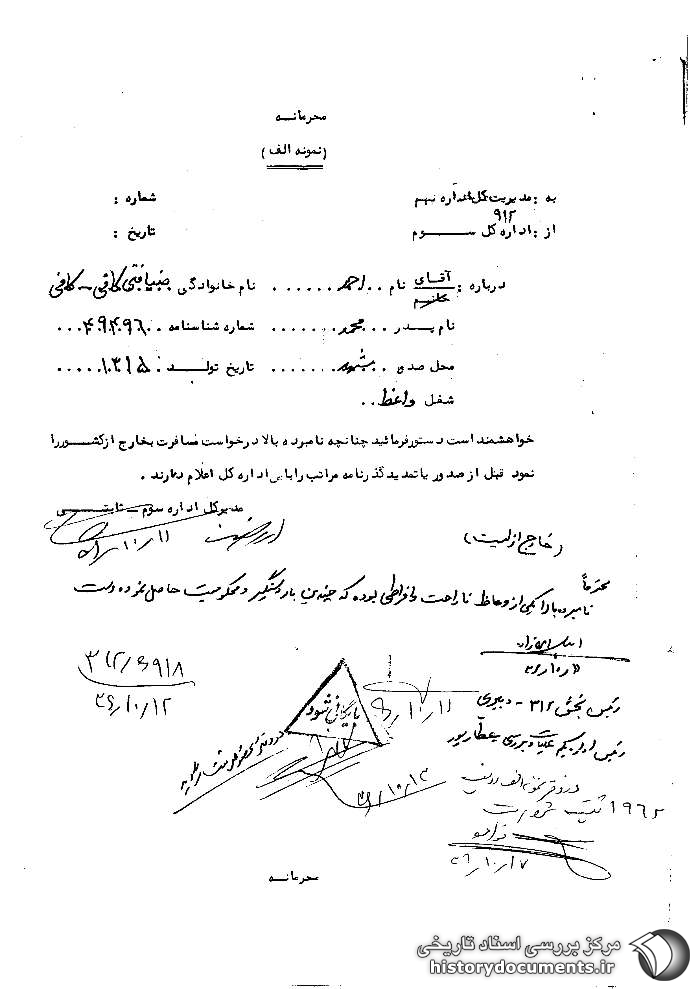 محرمانــه
(نمونه الف)
به : مدیریت کل اداره نهم
۹۱۲
شماره :
از : اداره کل ســــوم
تاریخ :
درباره : آقای نام . . احمد . . . . . . نام خانوادگی ضیافتی کافی - کافی
خانم
نام پــدر . . . محمد . . . . . . . شماره شناسنامه . . ۴۹۴۹۶ . . .
محل صدور . . مشهد . . . . . . . تاریخ تولــد : . ۱۳۱۵ . . . . .
شغل واعظ . .
خواهشمند است دستور فرمائید چنانچه نامبرده بالا درخواست مسافرت بخارج از کشور را
نمود قبل از صدور یا تمدید گذرنامه مراتب را باین اداره کل اعلام دارند .
مدیرکل اداره سوم - ثابتــی
(خارج از لیست)
محترماً
نامبرده بالا یکی از وعاظ ناراحت و افراطی بوده که چندین بار دستگیر و محکومیت حاصل نموده است
۳۱۲/۶۹۱۸
۳۶/۱۰/۱۲
رئیس بخش ۳۱۲ - دبیری
بایگانی شود
رئیس اداره یکم عملیات و بررسی - عطارپور
۳۶/۱۰/۱۳
در دفتر نمونه الف ردیف
۱۹۶۲ ثبت شده است
۳۶/۱۰/۱۷
محرمانــه
مرکز بررسی اسناد تاریخی
historydocuments.ir